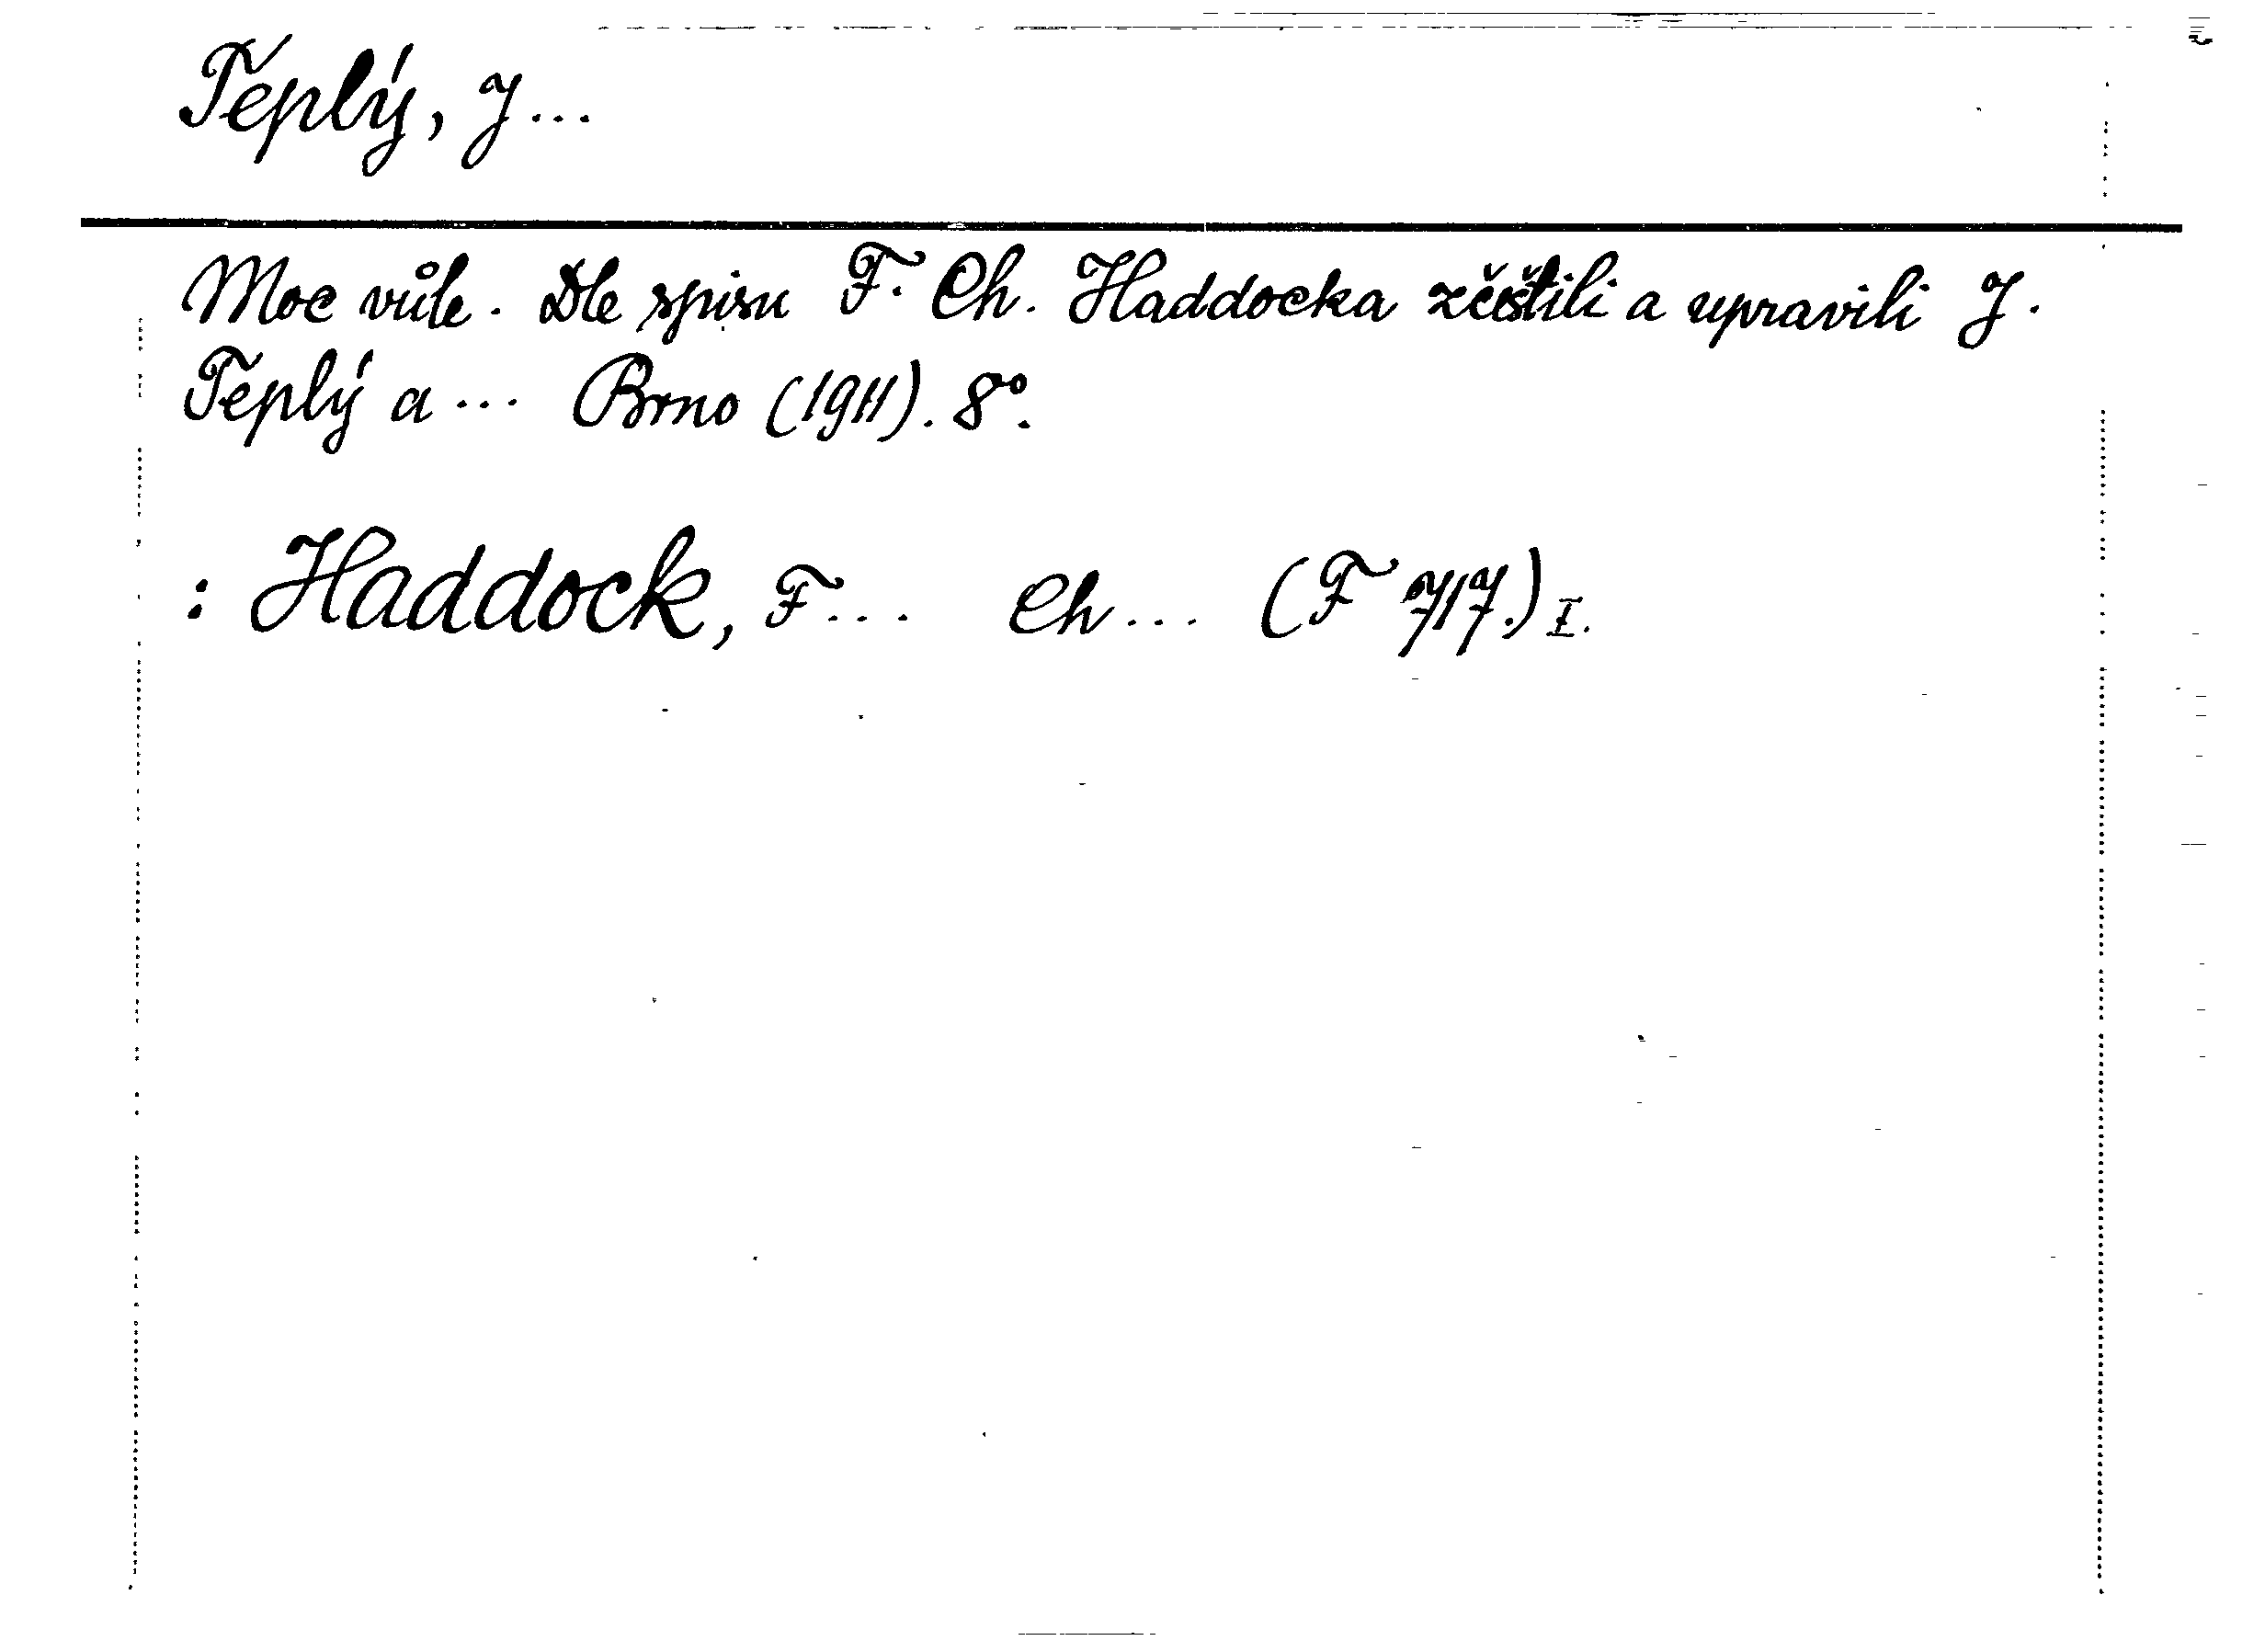 Teplý, J...
Moc vůle. Dle spisu F. Ch. Haddocka zčeštili a upravili J.
Teplý a ... Brno (1911). 8°.
: Haddock, F... Ch... (F 717.) I.